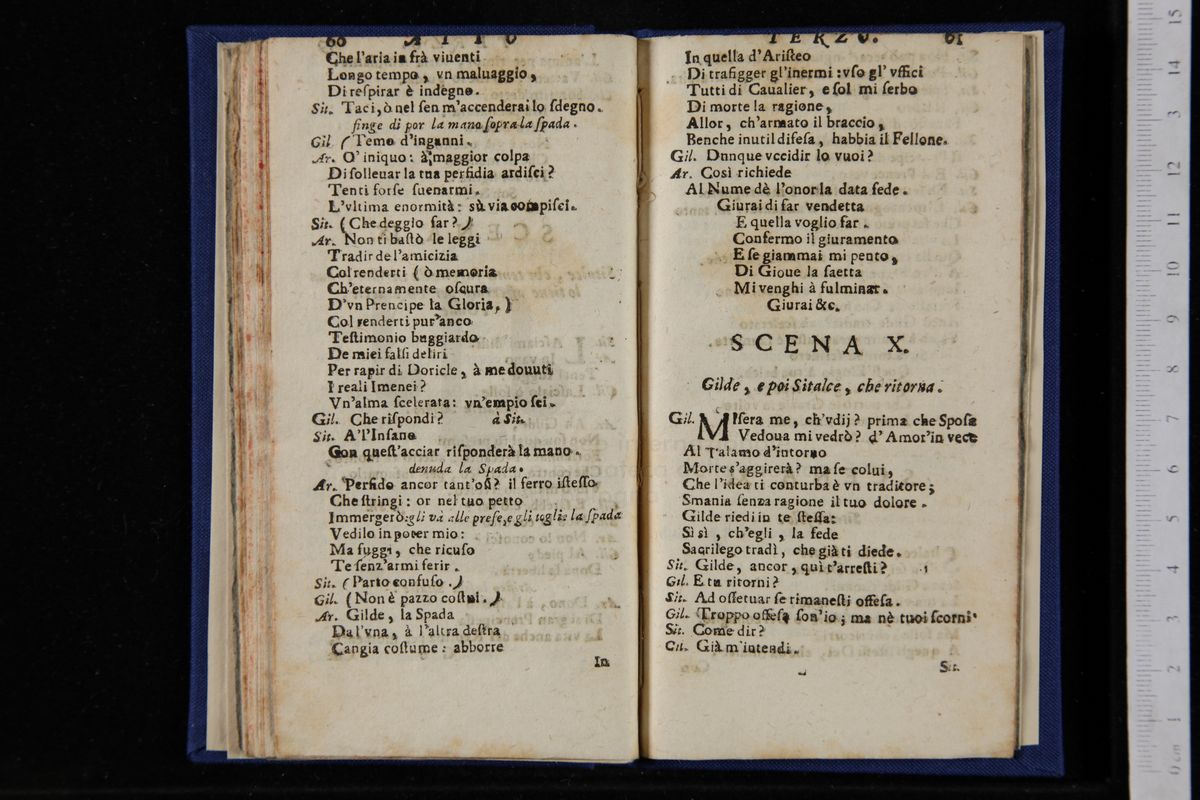 60 ATTO
Che l'aria in frà viuenti
Longo tempo, vn maluaggio,
Di reſpirar è indegno.
Sit. Taci, ò nel ſen m'accenderai lo ſdegno.
finge di por la mano ſopra la ſpada.
Gil (Temo d'inganni.
Ar. O' iniquo: à maggior colpa
Di ſolleuar la tna perfidia ardiſci?
Tenti forſe ſuenarmi.
L'vltima enormità: sù via compiſci.
Sit. (Che deggio far?)
Ar. Non ti baſtò le leggi
Tradir de l'amicizia
Col renderti (ò memoria
Ch'eternamente oſcura
D'vn Prencipe la Gloria,)
Col renderti pur'anco
Teſtimonio buggiardo
De miei falſi deliri
Per rapir di Doricle, à me douuti
I reali Imenei?
Vn'alma ſcelerata: vn'empio ſei.
Gil. Che riſpondi? à Sit.
Sit. A'l'Inſano
Con queſt'acciar riſponderà la mano.
denuda la Spada.
Ar. Perfido ancor tant'osi? il ferro iſteſſo
Che ſtringi: or nel tuo petto
Immergerò:egli và alle preſe,e gli toglie la ſpada
Vedilo in poter mio:
Ma fuggi, che ricuſo
Te ſenz'armi ferir.
Sit. (Parto confuſo.)
Gil. (Non è pazzo coſtui.)
Ar. Gilde, la Spada
Da l'vna, à l'altra deſtra
Cangia coſtume: abborre
In
TERZO. 61
In quella d'Ariſteo
Di trafigger gl'inermi :vſo gl'vffici
Tutti di Caualier, e ſol mi ſerbo
Di morte la ragione,
Allor, ch'armato il braccio,
Benche inutil difeſa, habbia il Fellone.
Gil. Dunque vccidir lo vuoi?
Ar. Così richiede
Al Nume dè l'onor la data fede.
Giurai di far vendetta
E quella voglio far.
Confermo il giuramento
E ſe giammai mi pento,
Di Gioue la ſaetta
Mi venghi à fulminar.
Giurai &c.
SCENA X.
Gilde, e poi Sitalce, che ritorna.
Gil. MIſera me, ch'vdij? prima che Spoſa
Vedoua mi vedrò? d'Amor'in vece
Al Talamo d'intorno
Morte s'aggirerà? ma ſe colui,
Che l'idea ti conturba è vn traditore;
Smania ſenza ragione il tuo dolore.
Gilde riedi in te ſteſſa:
Sì sì, ch'egli, la fede
Sacrilego tradì, che già ti diede.
Sit. Gilde, ancor, quì t'arreſti?
Gil. E tu ritorni?
Sit. Ad oſſetuar ſe rimaneſti offeſa.
Gil. Troppo offeſa ſon'io; ma nè tuoi ſcorni
Sit. Come dir?
Gil. Già m'intendi.
Sit.